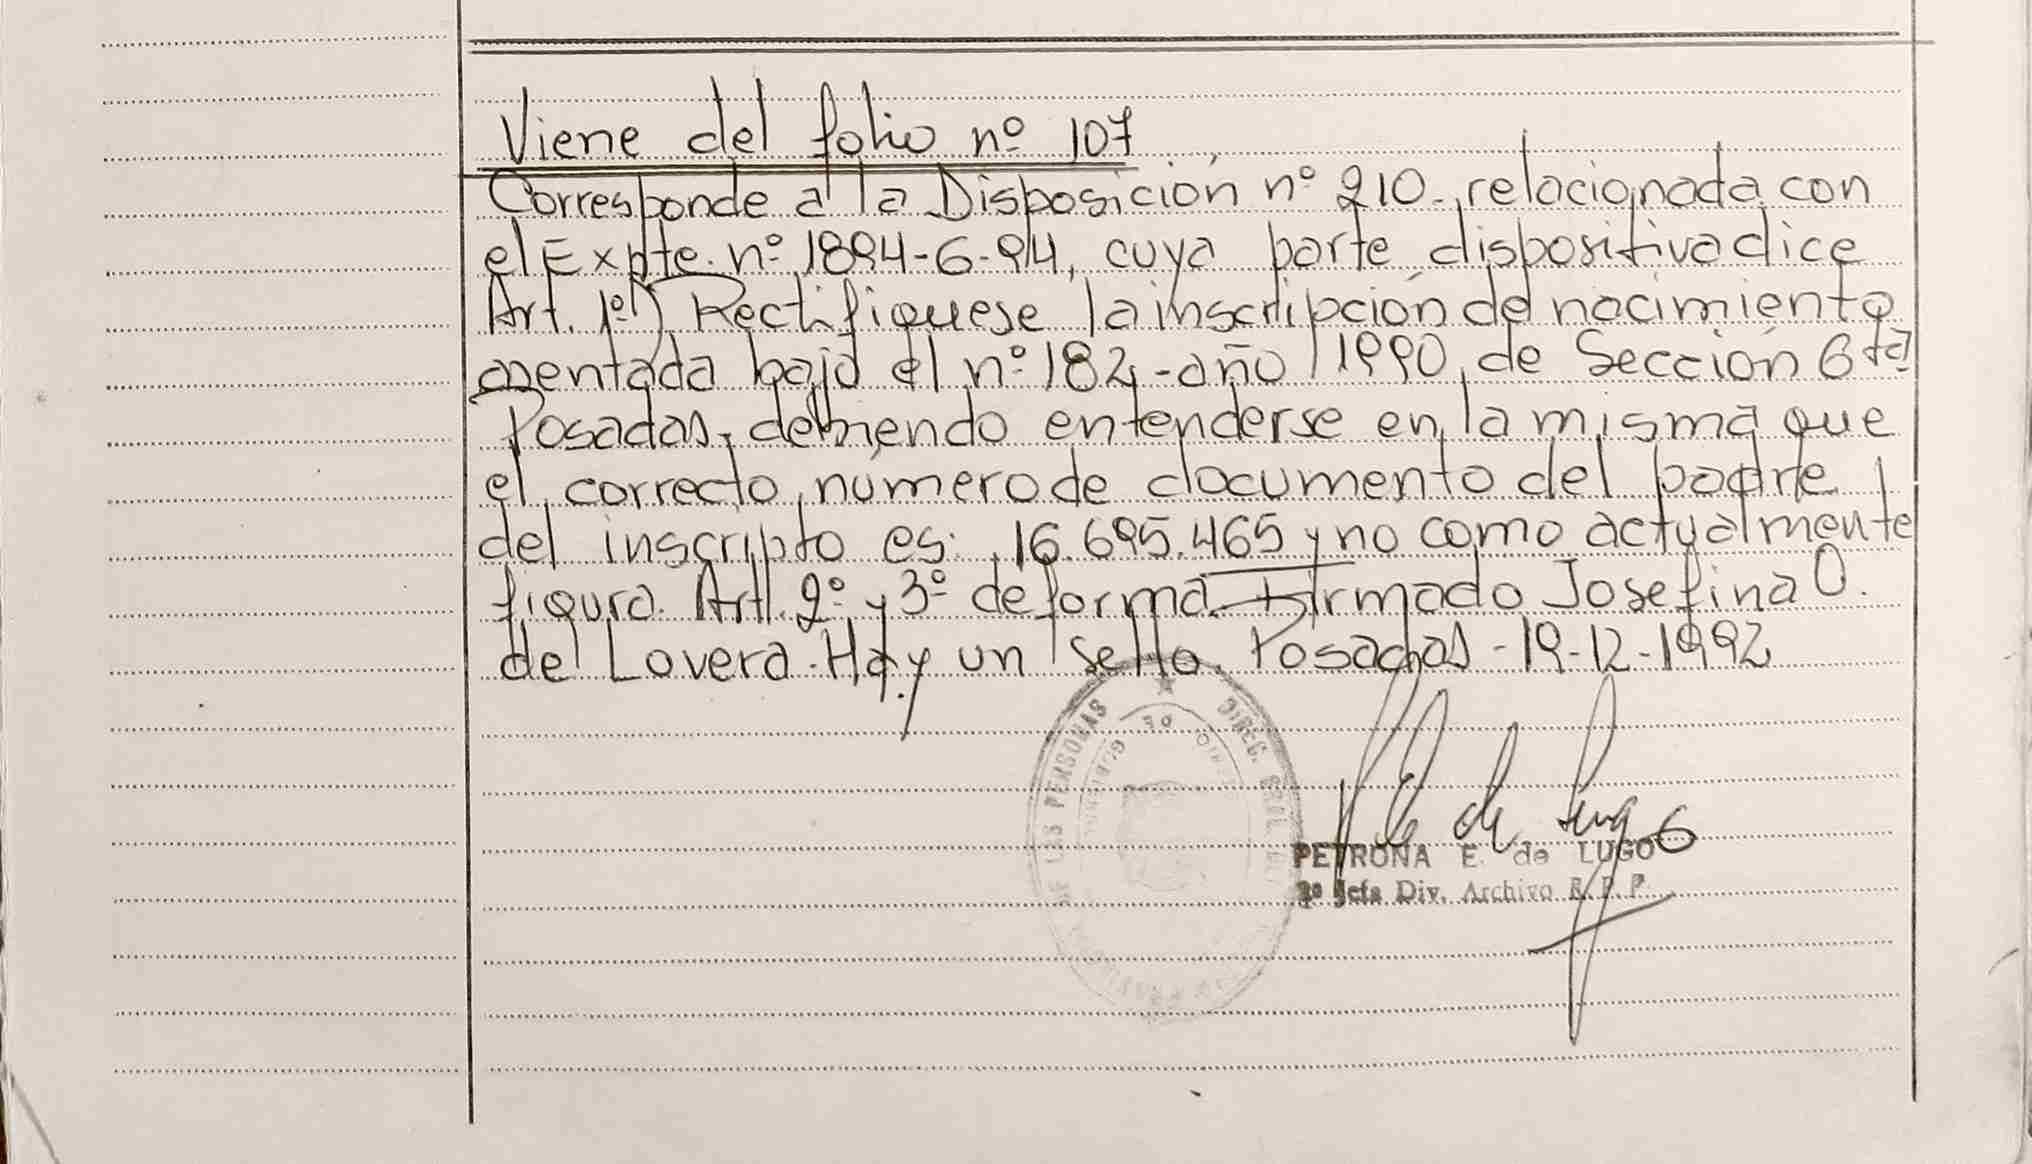 Viene del folio nº 107
Corresponde a la Disposición nº 210. relacionada con
el Expte. nº 1894-6-94, cuya parte dispositiva dice
Art. 1º) Rectifíquese la inscripción de nacimiento
asentada bajo el nº 182, -año 1990, de Sección 6ta
Posadas, debiendo entenderse en la misma que
el correcto número de documento del padre
del inscripto es: 16.695.465 y no como actualmente
figura. Art. 2º y 3º de forma. Firmado Josefina O.
de Lovera. Hay un sello. Posadas -19-12-1992
DIREC. GRAL DE LAS PERSONAS
PETRONA E. de LUGO
Jefa Div. Archivo R.P.P.